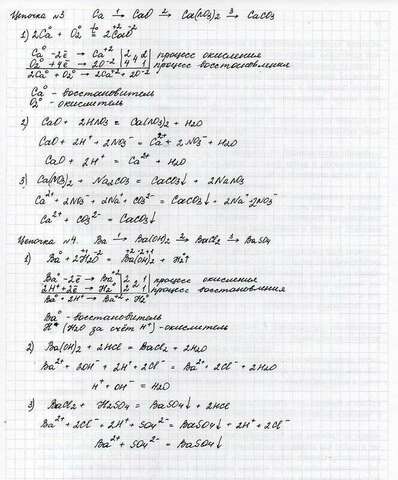 Цепочка №3 Ca —1→ CaO —2→ Ca(NO3)2 —3→ CaCO3
1) 2Ca⁰ + O2⁰ =t°= 2Ca⁺²O⁻²
Ca⁰ - 2ē → Ca⁺² | 2 | 2 | процесс окисления
O2⁰ + 4ē → 2O⁻² | 4 | 1 | процесс восстановления
2Ca⁰ + O2⁰ → 2Ca⁺² + 2O⁻²
Ca⁰ - восстановитель
O2⁰ - окислитель
2) CaO + 2HNO3 = Ca(NO3)2 + H2O
CaO + 2H⁺ + 2NO3⁻ = Ca²⁺ + 2NO3⁻ + H2O
CaO + 2H⁺ = Ca²⁺ + H2O
3) Ca(NO3)2 + Na2CO3 = CaCO3↓ + 2NaNO3
Ca²⁺ + 2NO3⁻ + 2Na⁺ + CO3²⁻ = CaCO3↓ + 2Na⁺ 2NO3⁻
Ca²⁺ + CO3²⁻ = CaCO3↓
Цепочка №4. Ba —1→ Ba(OH)2 —2→ BaCl2 —3→ BaSO4
1) Ba⁰ + 2H2⁺¹O⁻² = Ba⁺²(O⁻²H⁺¹)2 + H2⁰
Ba⁰ - 2ē → Ba⁺² | 2 | 1 | процесс окисления
2H⁺ + 2ē → H2⁰ | 2 | 1 | процесс восстановления
Ba⁰ + 2H⁺ → Ba⁺² + H2⁰
Ba⁰ - восстановитель
H⁺ (H2O за счёт H⁺) - окислитель
2) Ba(OH)2 + 2HCl = BaCl2 + 2H2O
Ba²⁺ + 2OH⁻ + 2H⁺ + 2Cl⁻ = Ba²⁺ + 2Cl⁻ + 2H2O
H⁺ + OH⁻ = H2O
3) BaCl2 + H2SO4 = BaSO4↓ + 2HCl
Ba²⁺ + 2Cl⁻ + 2H⁺ + SO4²⁻ = BaSO4↓ + 2H⁺ + 2Cl⁻
Ba²⁺ + SO4²⁻ = BaSO4↓